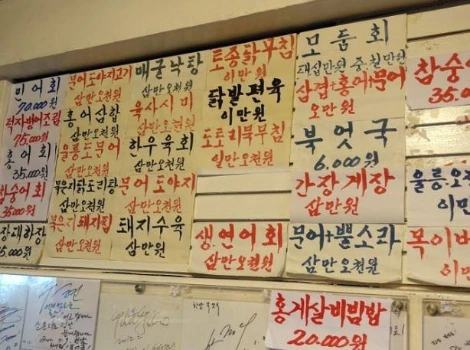 민어회
70,000원
75,000원
홍어회
35,000원
참숭어회
35,000원
문어도야지고기
삼만오천원
홍어삼합
삼만오천원
울릉도부어
삼만오천원
묵은지닭도리탕
삼만오천원
묵은지돼지찜
삼만오천원
매굴낙탕
삼만오천원
육사시미
삼만오천원
한우육회
삼만오천원
부어도야지
삼만오천원
돼지수육
삼만원
토종닭무침
이만원
닭발편육
이만원
도토리묵무침
일만오천원
생연어회
삼만오천원
모둠회
대십만원 중칠만원
삼겹+홍어+문어
오만원
북엇국
6,000원
간장게장
삼만원
문어+뿔소라
삼만오천원
홍게살비빔밥
20,000원
참숭어
35,00
울릉.오
이만
목이버
이만